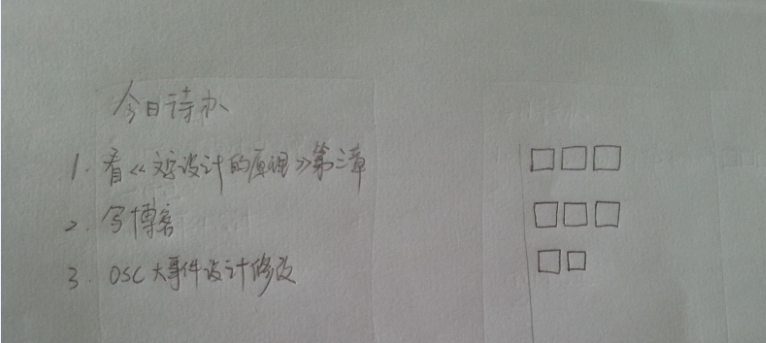 今日待办
1. 看《文字设计的原理》第三章
2. 写博客
3. OSC大事件设计修改